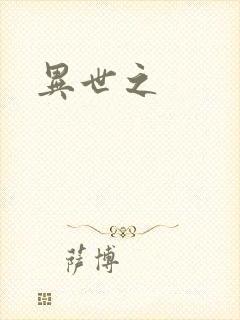 異世之
萨博